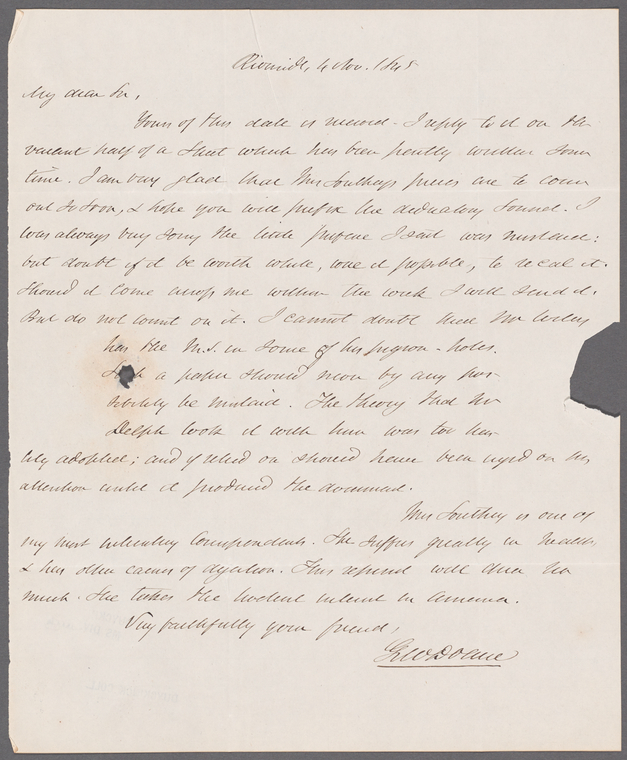 Riverside, 4 Nov. 1845
My dear Sir,
Yours of this date is received. I reply to it on the
vacant half of a sheet which has been partly written some
time. I am very glad that Mrs Southey's pieces are to come
out so soon, & hope you will prefix the dedicatory Sonnet. I
was always very sorry the little preface I sent was mislaid:
but doubt if it be worth while, were it possible, to recal it.
Should it come across me within the week I will send it.
But do not count on it. I cannot doubt that Mr
has the M.S. in some of his pigeon-holes.
Such a paper should never by any pos-
sibility be mislaid. The theory that Mr
Delph took it with him was too has-
tily adopted; and if relied on should have been urged on his
attention until it produced the document.
Mrs Southey is one of
my most interesting Correspondents. She suffers greatly in health
& has other causes of This reprint will cheer her
much. She takes the liveliest interest in America.
Very faithfully your friend,
G W Doane